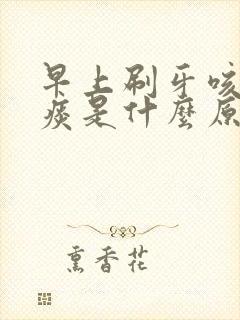 早上刷牙咳
痰是什麼原
熏香花